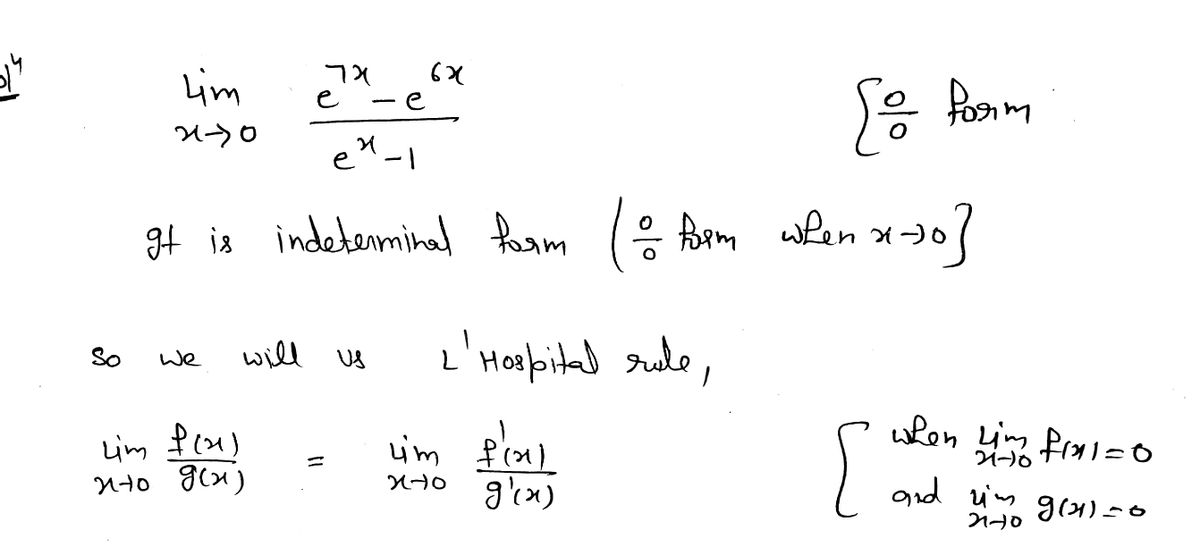 Solⁿ lim x→0 (e^{7x} - e^{6x})/(e^x - 1) { 0/0 form
It is indeterminal form ( 0/0 form when x→0 ]
So we will us L'Hospital rule,
lim x→0 f(x)/g(x) = lim x→0 f'(x)/g'(x) { when lim x→0 f(x) = 0
and lim x→0 g(x) = 0